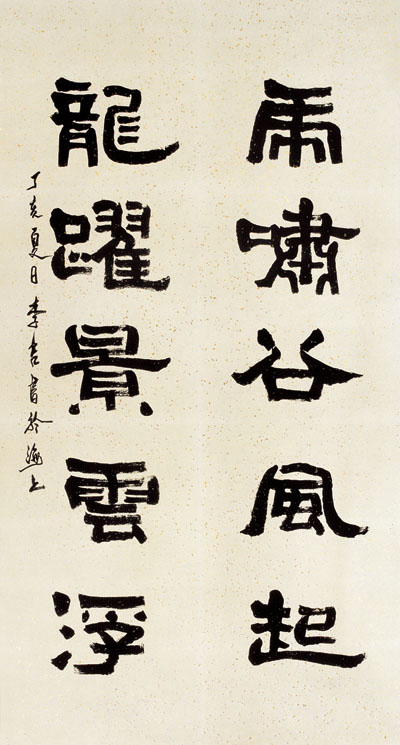 虎嘯谷風起
龍躍景雲浮
丁亥夏日李吉書於海上